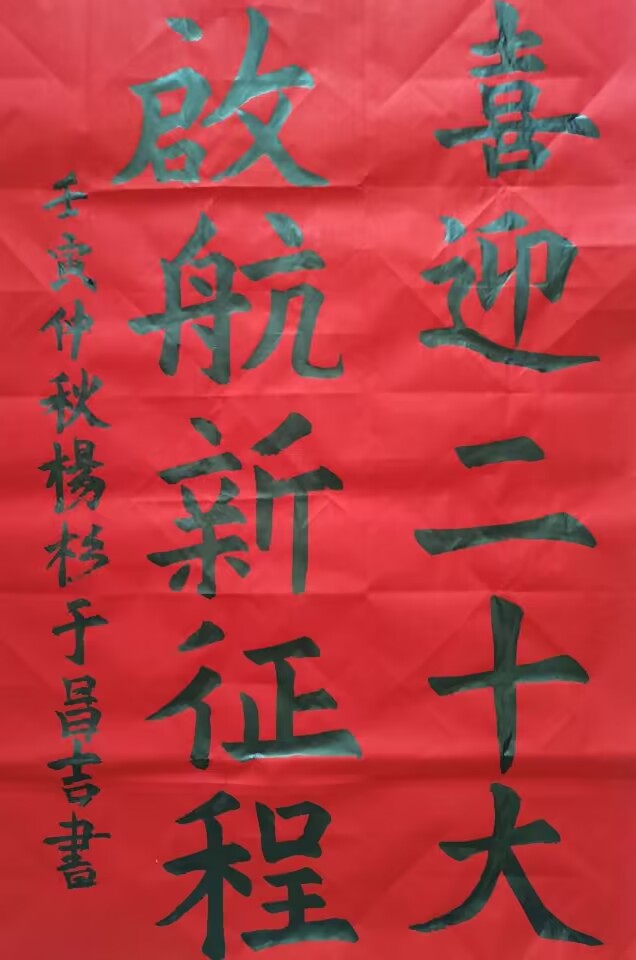 喜迎二十大
啟航新征程
壬寅仲秋楊杉于昌吉書